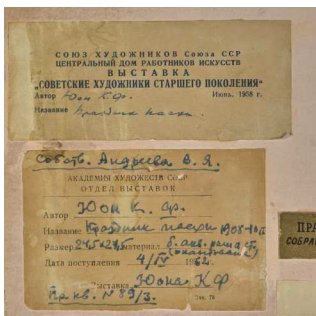 СОЮЗ ХУДОЖНИКОВ Союза ССР
ЦЕНТРАЛЬНЫЙ ДОМ РАБОТНИКОВ ИСКУССТВ
ВЫСТАВКА
„СОВЕТСКИЕ ХУДОЖНИКИ СТАРШЕГО ПОКОЛЕНИЯ“
Автор Юон К.Ф. Июнь, 1958 г.
Название Праздник пасхи
Собств. Андреева В. Я.
АКАДЕМИЯ ХУДОЖЕСТВ СССР
ОТДЕЛ ВЫСТАВОК
Автор Юон К. Ф.
Название Праздник пасхи 1908-10
Размер материал б. акв.
Дата поступления 4/IV 1962 г.
Выставка Юона К Ф
Пр. кв. N 89/3.
Зак. 76
ПРА
СОБРАН